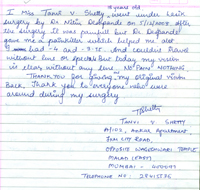 18 years old
I Miss Tanvi V Shetty, went under Lasik
surgery by Dr Nitin Deshpande on 5/12/2009. After
the surgery it was painful but Dr Deshpande
gave me a painkiller which helped me alot
I had -4 and -3.75. And couldn't travel
without lens or spectacles but today my vision
is clear without any lens. No PAIN NOTHING.
THANK YOU for giving my original vision
Back. Thank you to everyone who were
around during my surgery.
TShetty
TANVI V SHETTY
A/102, Ankur Apartment
JITENDRA ROAD
OPPOSITE TEMPLE
MALAD (EAST)
MUMBAI - 400097
TELEPHONE NO: